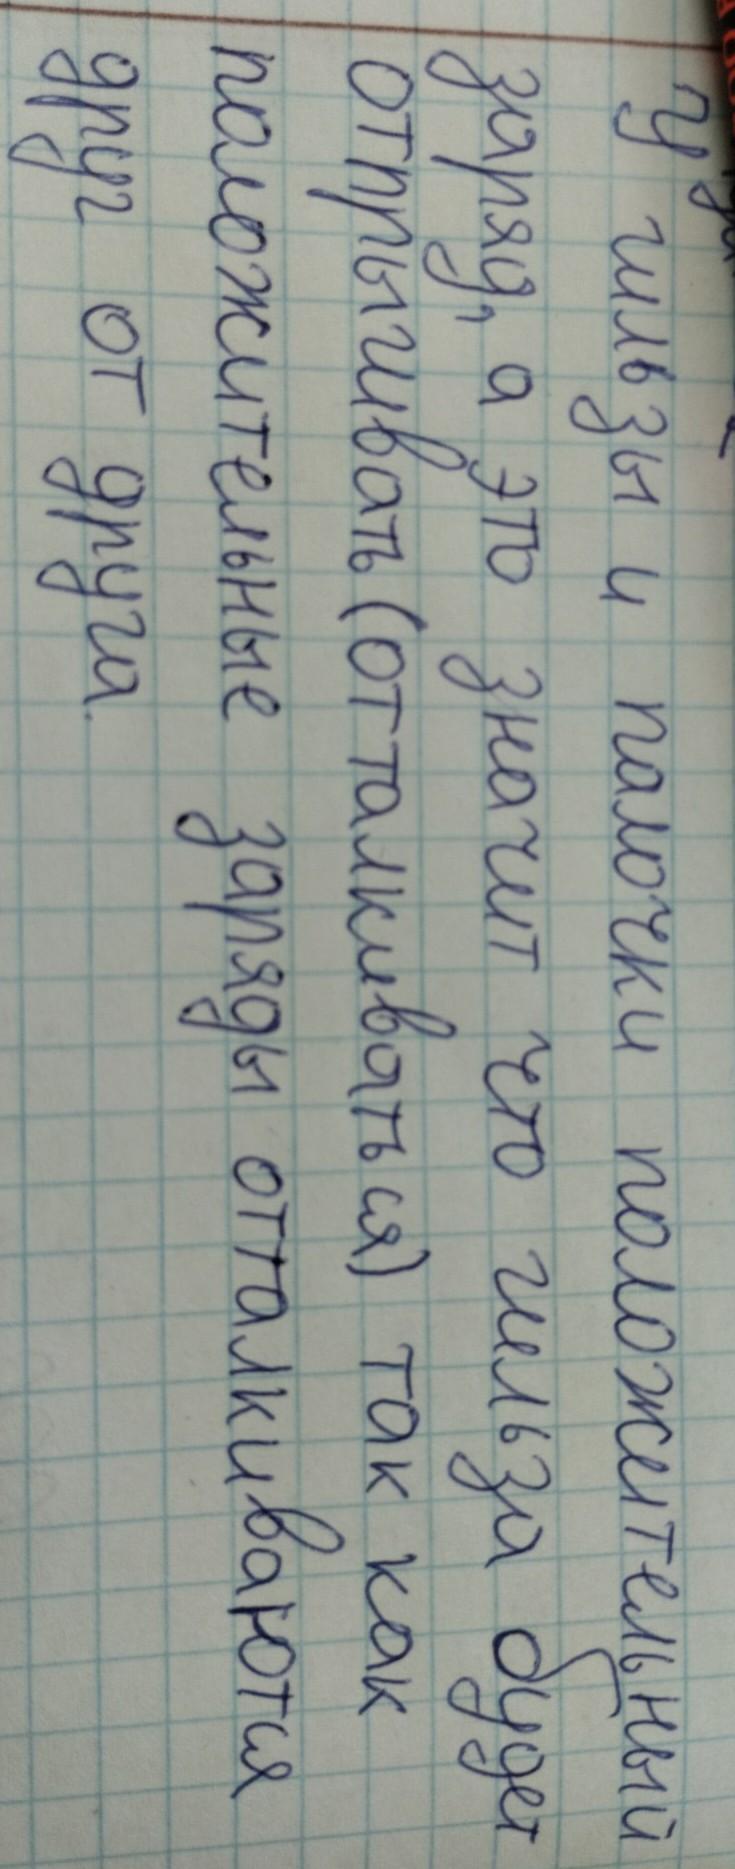 У гильзы и палочки положительный
заряд, а это значит что гильза будет
отпрыгивать (отталкиваться) так как
положительные заряды отталкиваются
друг от друга.